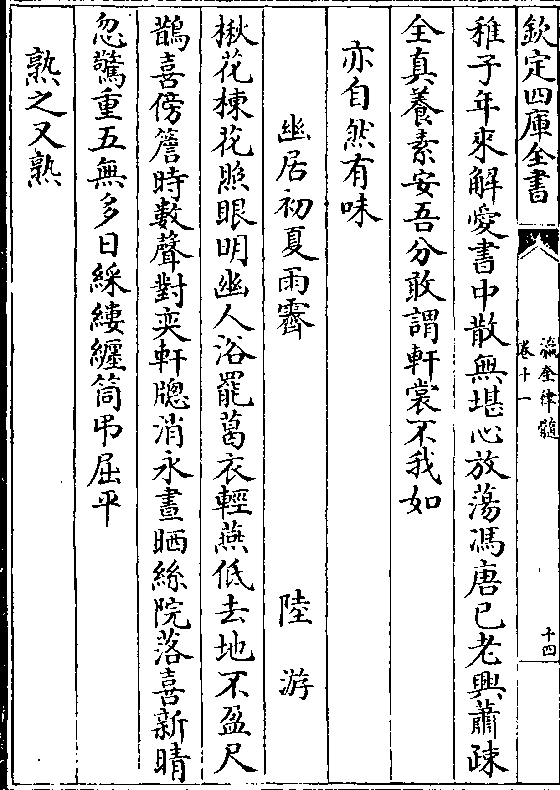 欽定四庫全書
瀛奎律髓
卷十一
十四
稚子年來解愛書中散無堪心放蕩馮唐已老興蕭疎
全真養素安吾分敢謂軒裳不我如
亦自然有味
幽居初夏雨霽
陸游
楸花楝花照眼明幽人浴罷葛衣輕燕低去地不盈尺
鵲喜傍簷時數聲對奕軒牕消永晝晒絲院落喜新晴
忽驚重五無多日綵縷纏筒弔屈平
熟之又熟